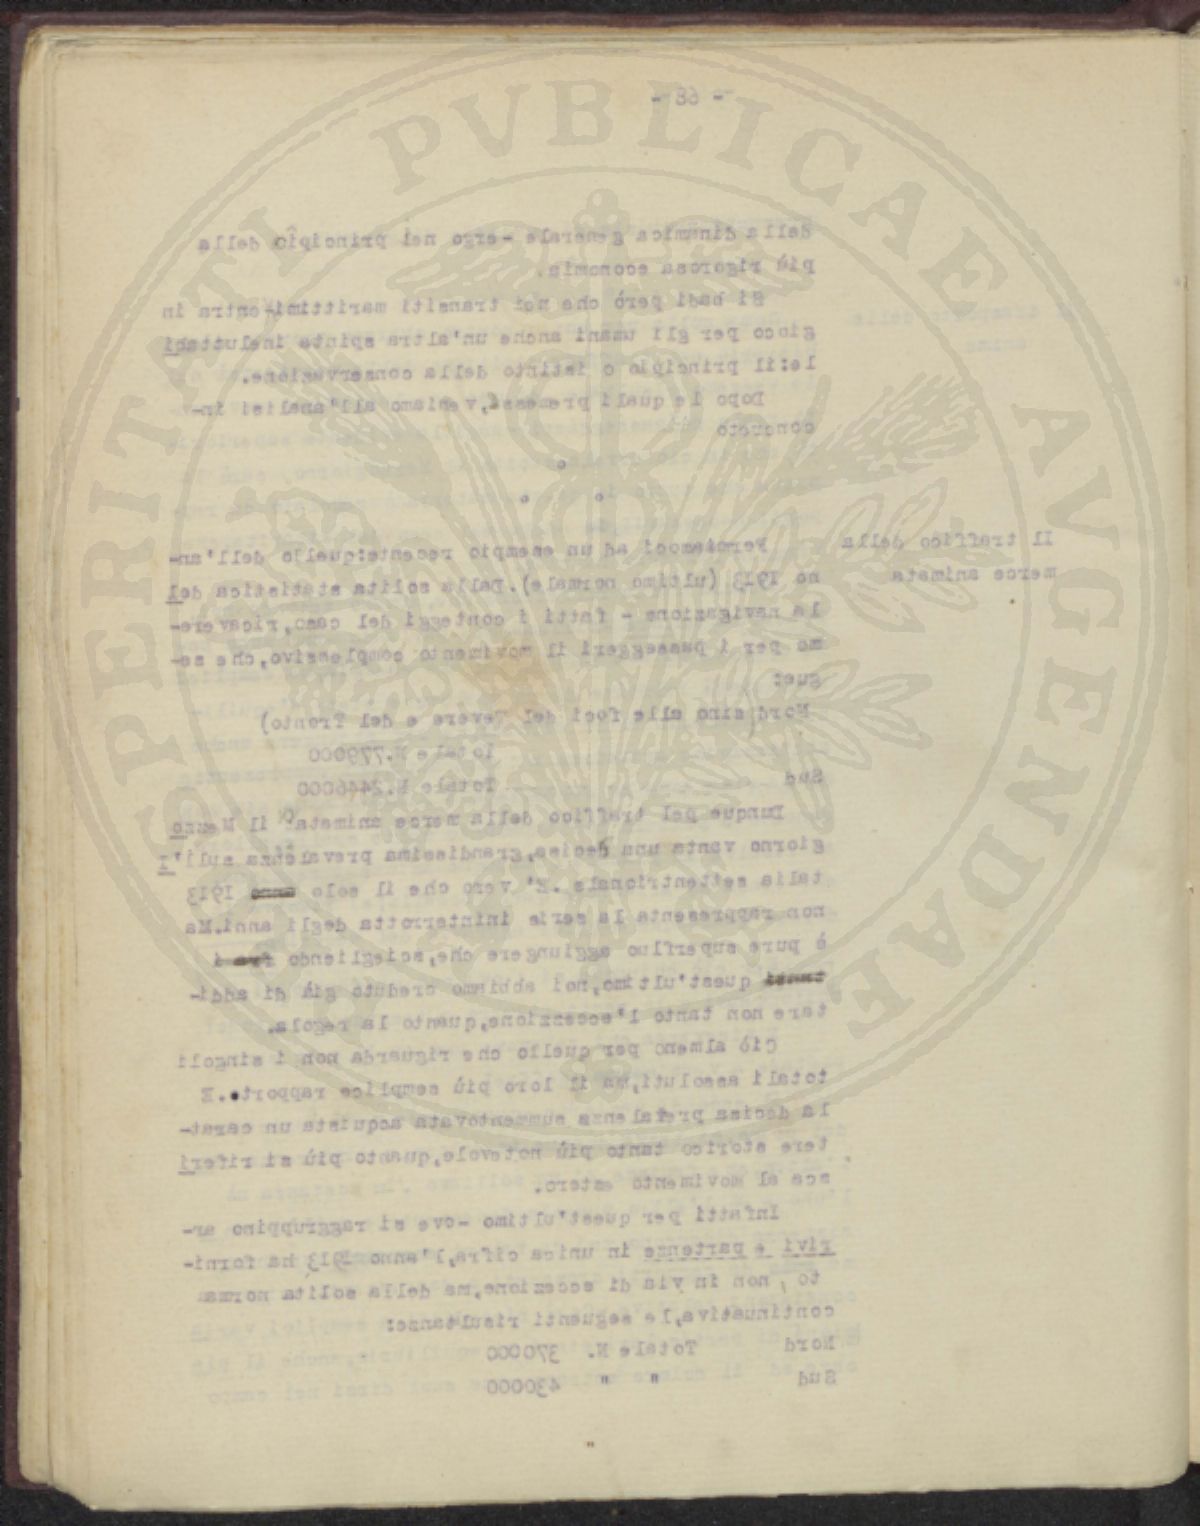 - 68 -
della dinamica generale -ergo nei principio della
più rigorosa economia.
Si badi però che nei transiti marittimi-entra in
gioco per gli umani anche un'altra spinta ineluttabi
le:il principio o istinto della conservazione.
Dopo le quali premesse,veniamo all'analisi in-
concreto
Il traffico della
merce animata
Fermiamoci ad un esempio recente:quello dell'an-
no 1913 (ultimo normale).Dalla solita statistica del
la navigazione - fatti i conteggi del caso,ricavere-
mo per i passeggeri il movimento complessivo,che se-
gue:
Nord(sino alle foci del Tevere e del Tronto)
Totale N.779000
Sud Totale N.2446000
Dunque pel traffico della merce animata il Mezzo
giorno vanta una decisa,grandissima prevalenza sull'I
talia settentrionale .E' vero che il solo anno 1913
non rappresenta la serie ininterrotta degli anni.Ma
è pure superfluo aggiungere che,sciegliendo fra i
tanti quest'ultimo,noi abbiamo creduto già di addi-
tare non tanto l'eccezzione,quanto la regola.
Ciò almeno per quello che riguarda non i singoli
totali assoluti,ma il loro più semplice rapporto.E
la decisa prevalenza summentovata acquista un carat-
tere storico tanto più notevole,quanto più si riferi
sca al movimento estero.
Infatti per quest'ultimo -ove si raggruppino ar-
rivi e partenze in unica cifra,l'anno 1913 ha forni-
to , non in via di eccezione,ma della solita norma
continuativa,le seguenti risultanze:
Nord Totale N. 370000
Sud " " 430000
ASPERITATI PVBLICAE AVGENDAE